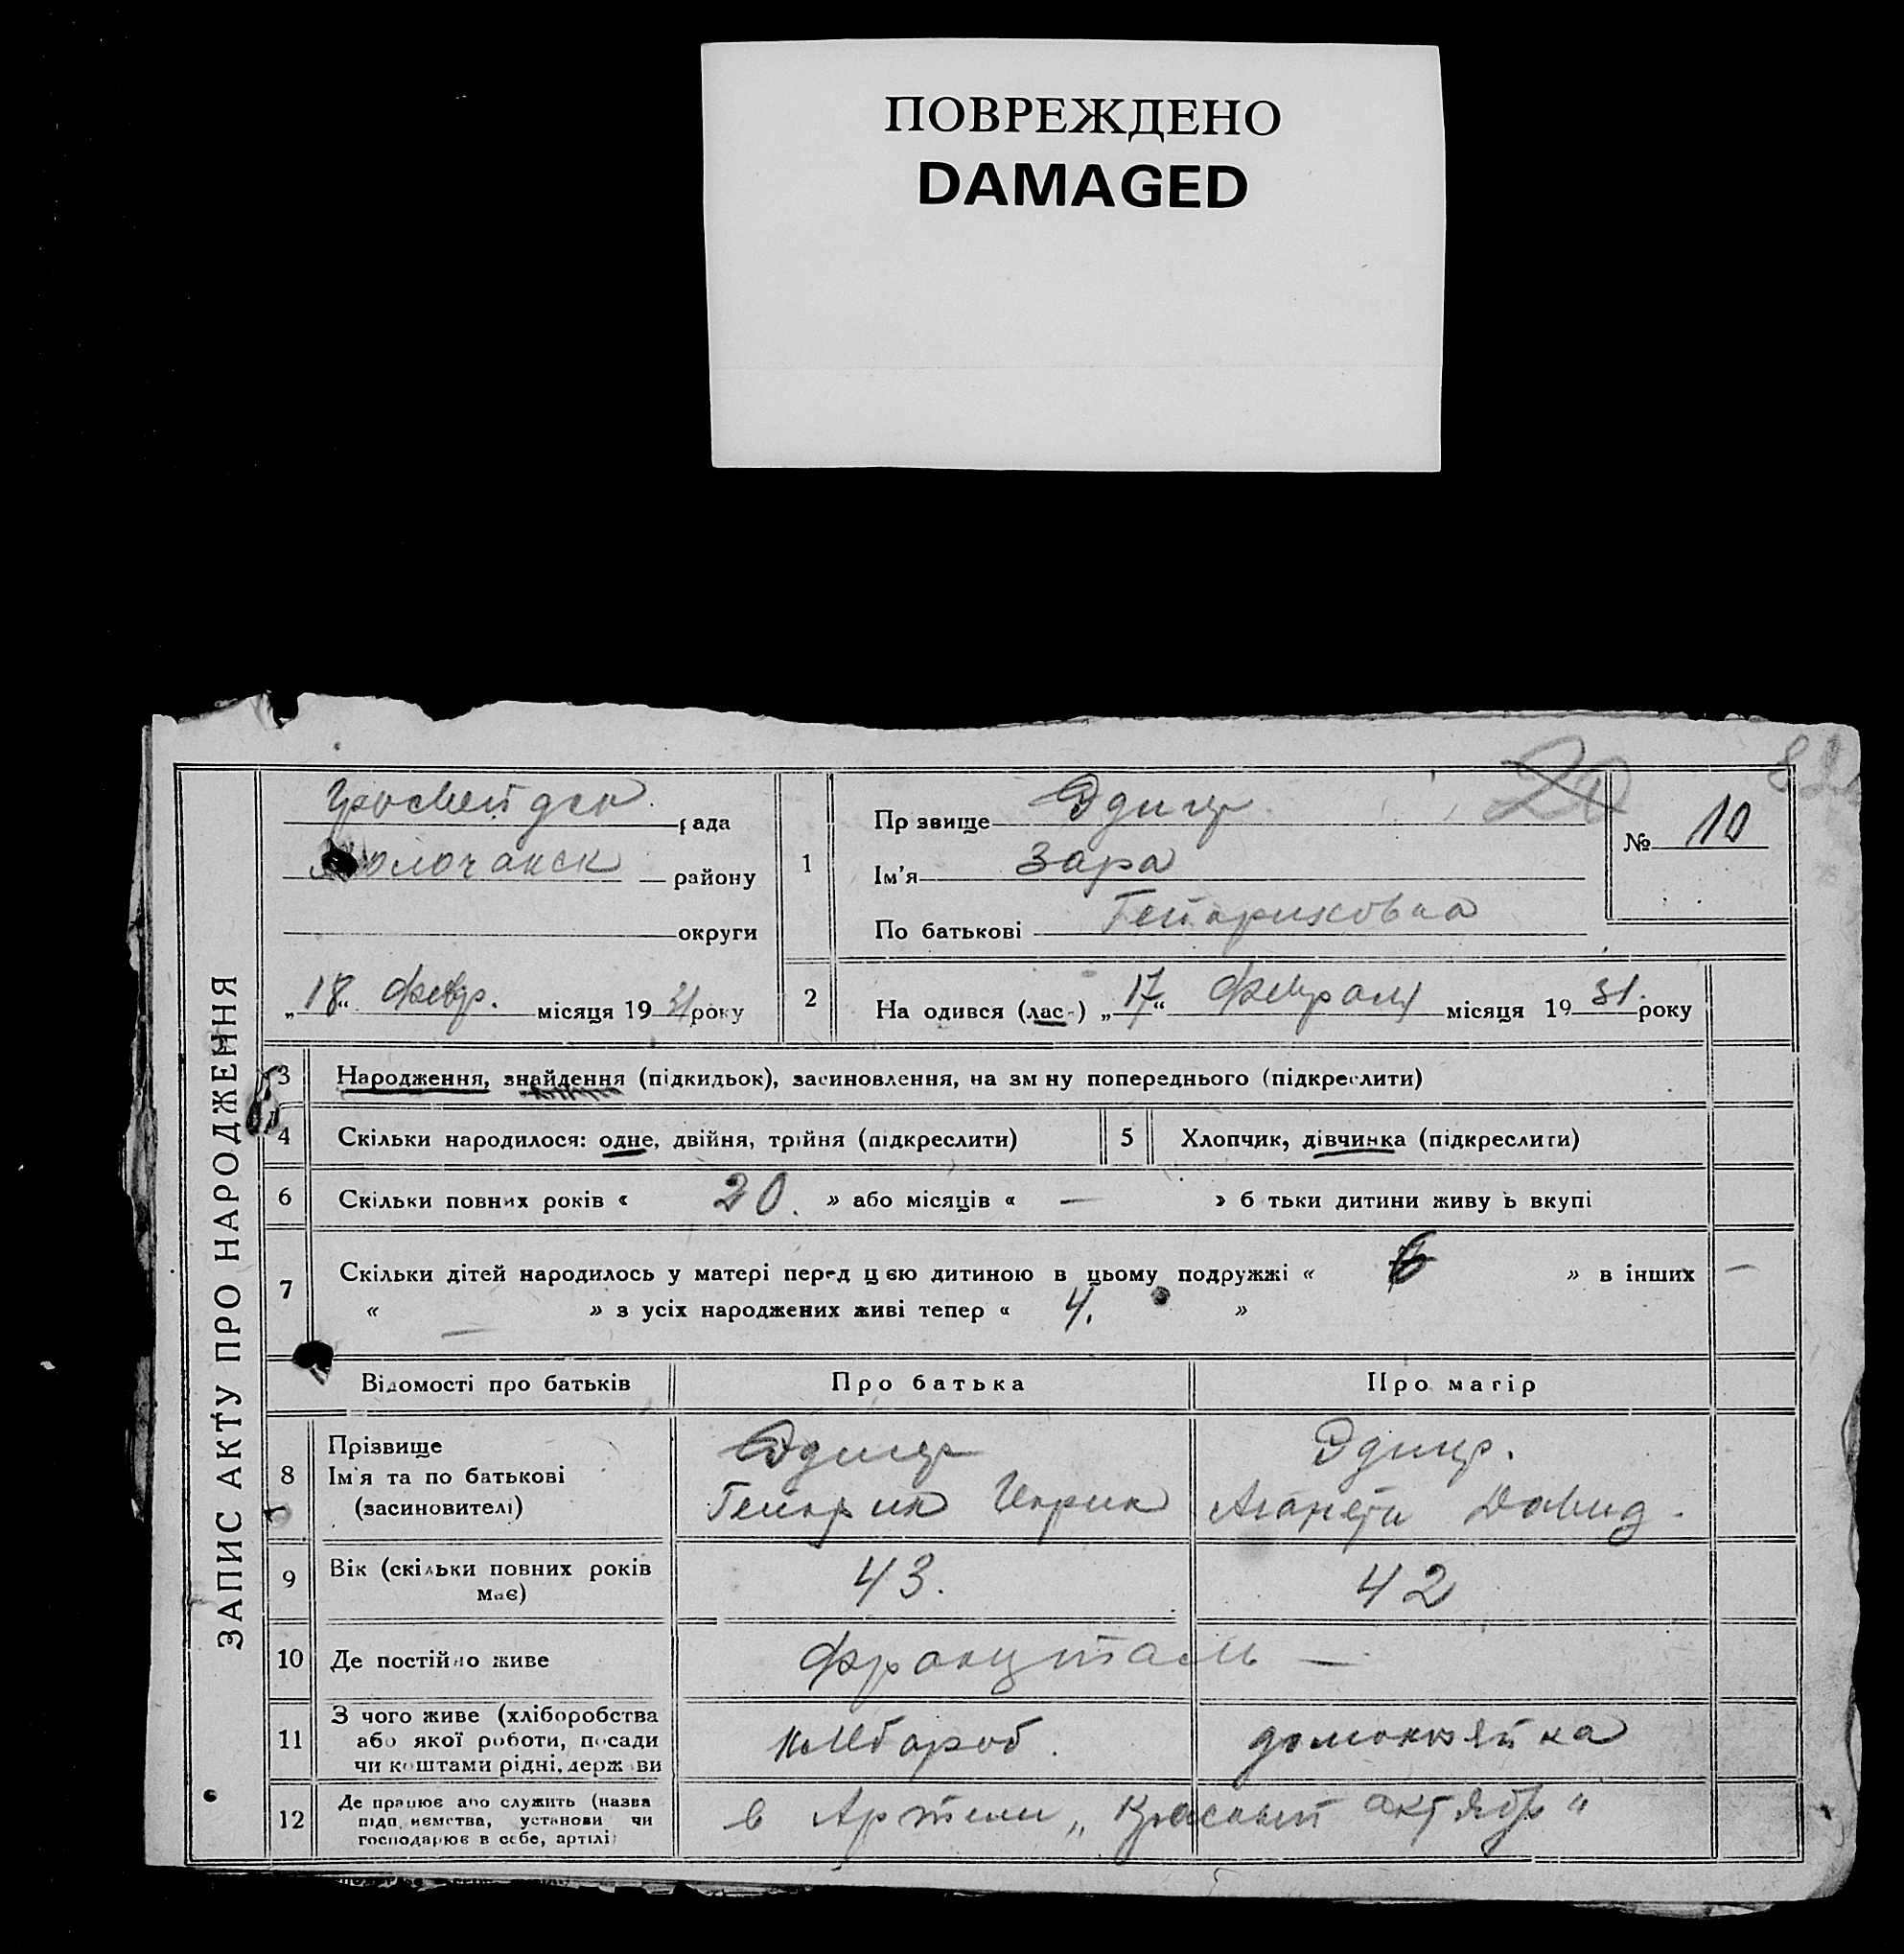 ПОВРЕЖДЕНО
DAMAGED
20
ЗАПИС АКТУ ПРО НАРОДЖЕННЯ
рада
Молочанск району
округи
„18“ Февр. місяця 1931 року
1
Пр звище Эдигер
Ім’я Зара
По батькові Гейнриховна
№ 10
2
На одився (лас-) „17“ Февраля місяця 1931. року
3 Народження, знайдення (підкидьок), засиновлення, на зм ну попереднього (підкреслити)
4 Скільки народилося: одне, двійня, трійня (підкреслити) 5 Хлопчик, дівчинка (підкреслити)
6 Скільки повних років « 20. » або місяців « — » б тьки дитини живу ь вкупі
7 Скільки дітей народилось у матері перед цєю дитиною в цьому подружжі « 6 » в інших —
« — » з усіх народжених живі тепер « 4. »
Відомості про батьків Про батька Про матір
8 Прізвище
Ім’я та по батькові
(засиновителі)
Эдигер Эдигер.
Гейнрик Агането Давид.
9 Вік (скільки повних років
має)
43. 42
10 Де постійно живе Францталь —
11 З чого живе (хліборобства
або якої роботи, посади
чи коштами рідні, держ ви
хлебороб. домохозяйка
12 Де працює або служить (назва
підп иємства, установи чи
господарює в себе, артілі)
в Артели „Красный Октябрь“